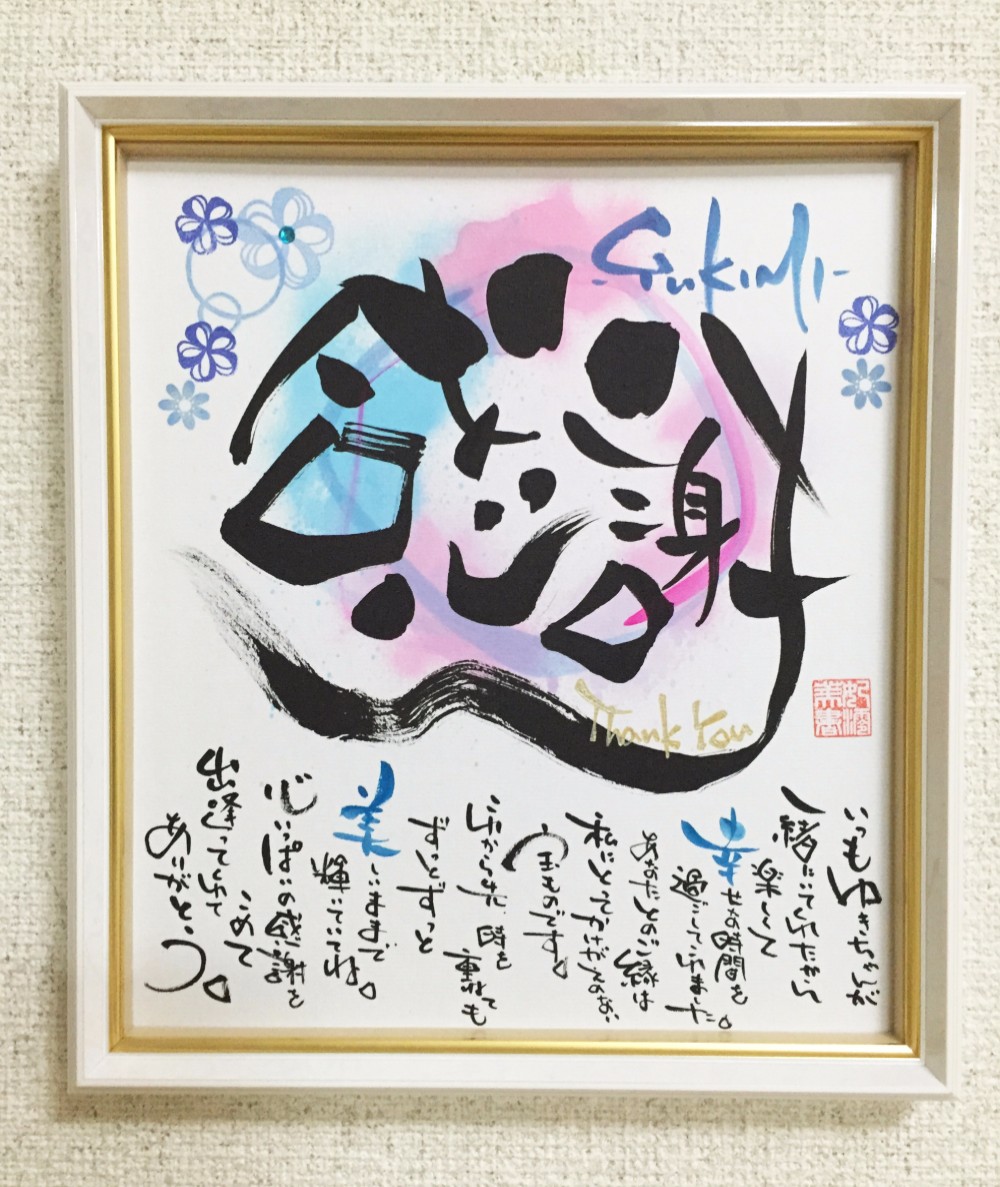 感謝
Thank You
いつもゆきちゃんが
一緒にいてくれたから
楽しくて
幸せな時間を
過ごしてこれました。
あなたとのご縁は
私にとってかけがえのない
宝ものです。
これから先、時を
重ねても
ずっとずっと
美しいままで
輝いていてね。
心いっぱいの感謝を
こめて
出逢ってくれて
ありがとう。